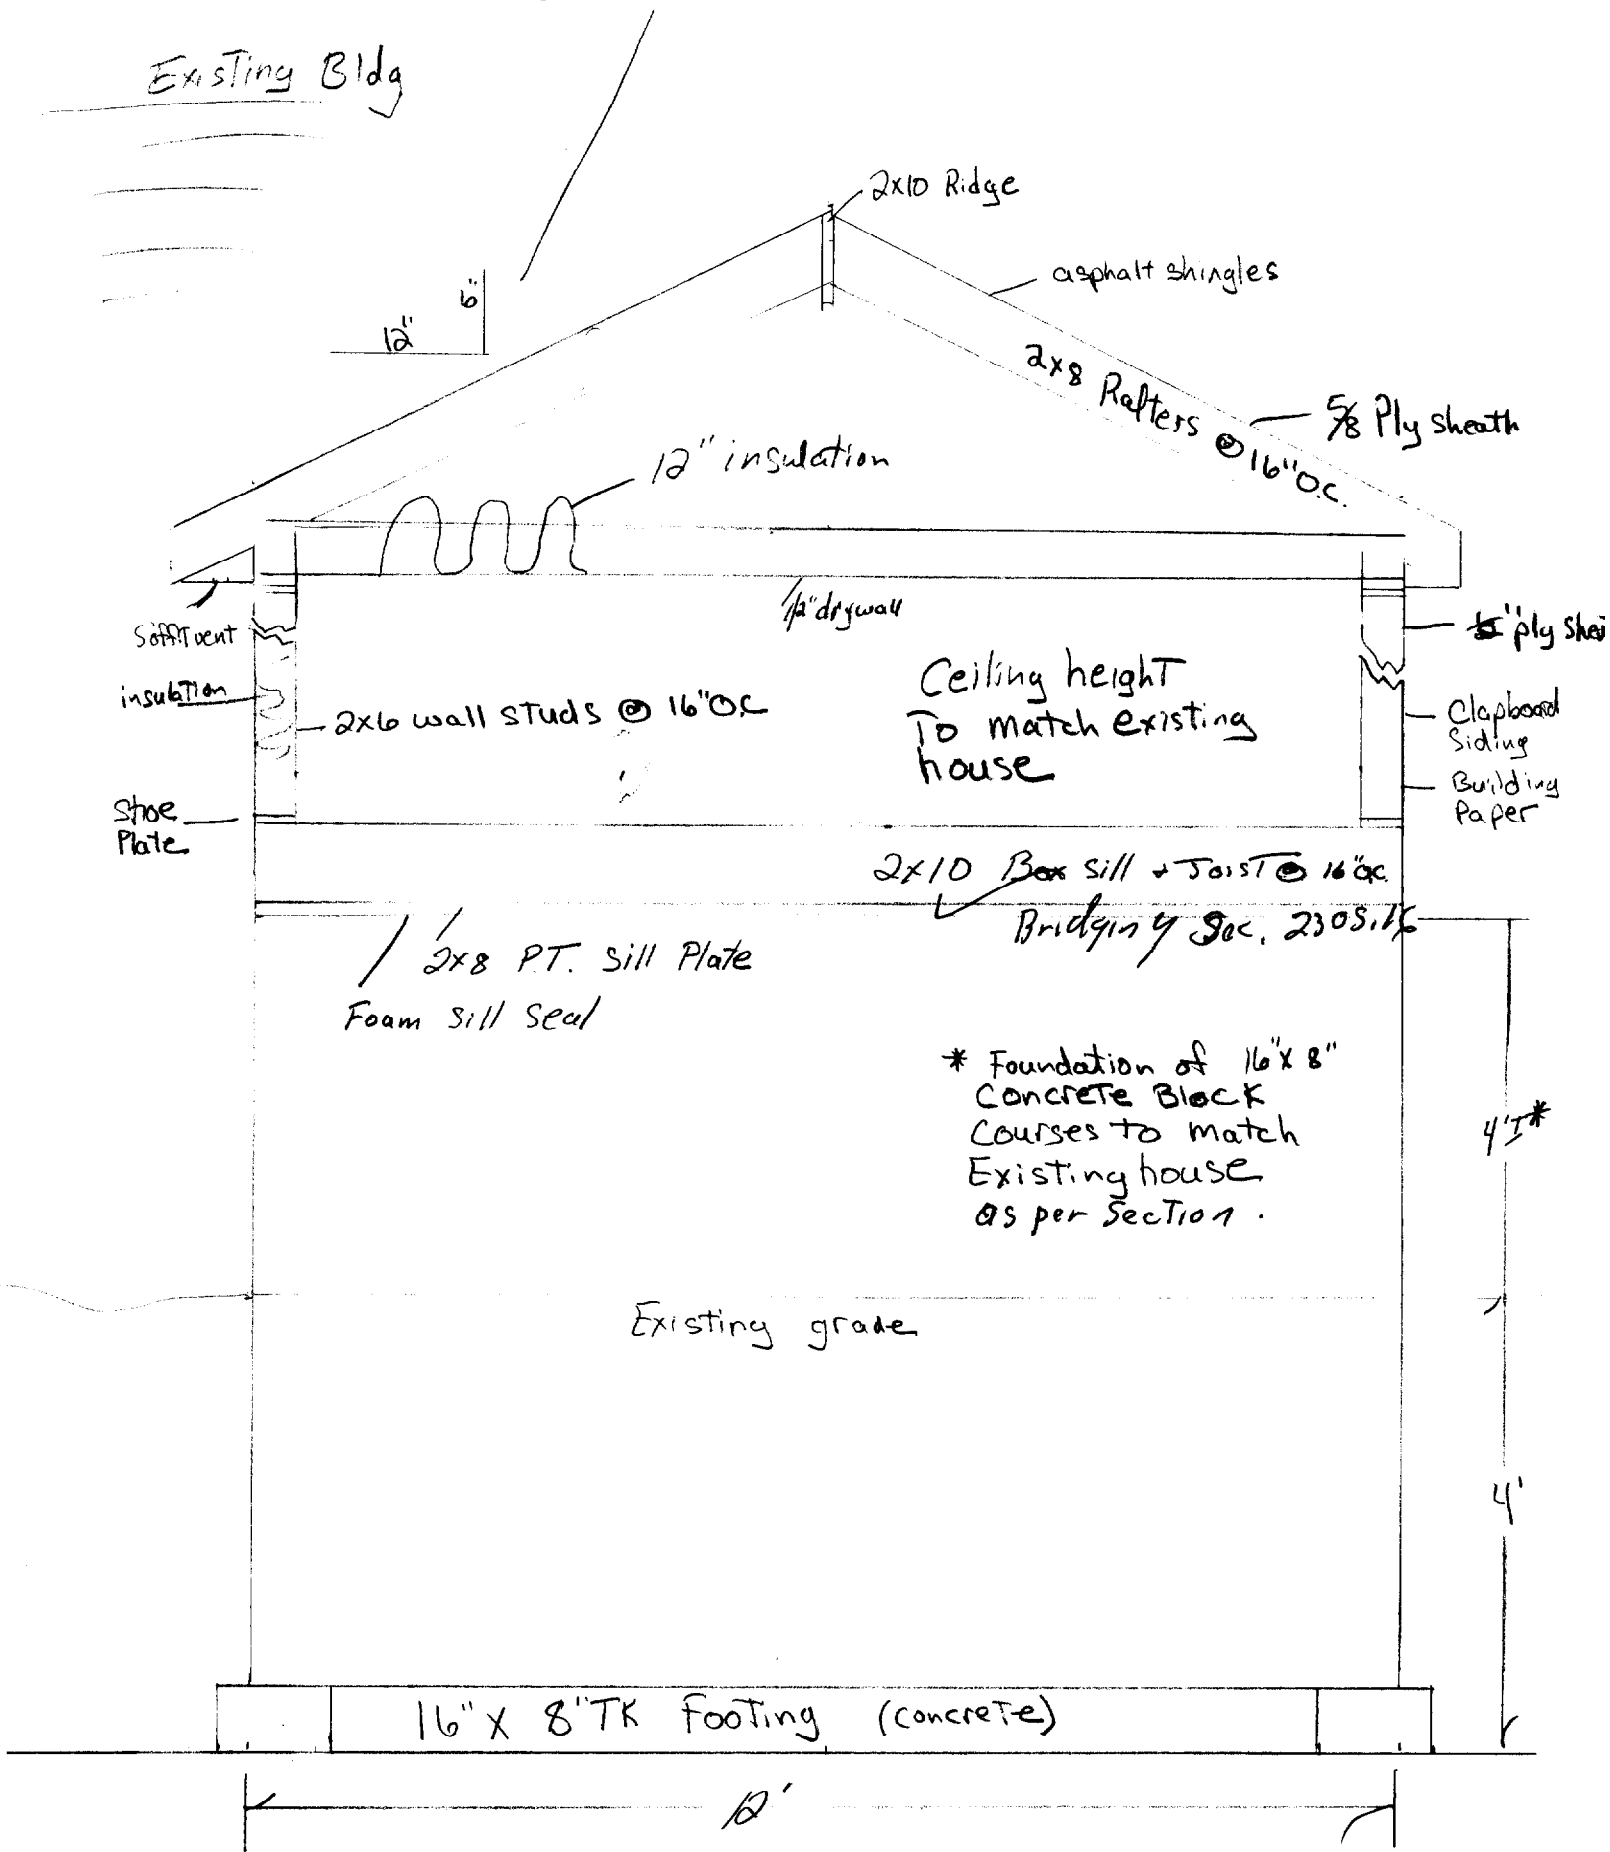 Existing Bldg
2x10 Ridge
asphalt shingles
6"
12"
2x8 Rafters @ 16" O.C.
5/8 Ply sheath
12" insulation
1/2" drywall
Soffit vent
ply
insulation
2x6 wall studs @ 16" O.C
Ceiling height
To match existing
house
Clapboard
Siding
Building
Paper
Shoe
Plate
2x10 Box Sill + Joist @ 16" O.C.
Bridging
2x8 P.T. Sill Plate
Foam Sill Seal
* Foundation of 16" x 8"
Concrete Block
Courses to match
Existing house
as per Section.
4' ± *
Existing grade
4'
16" x 8" TK Footing (concrete)
12'